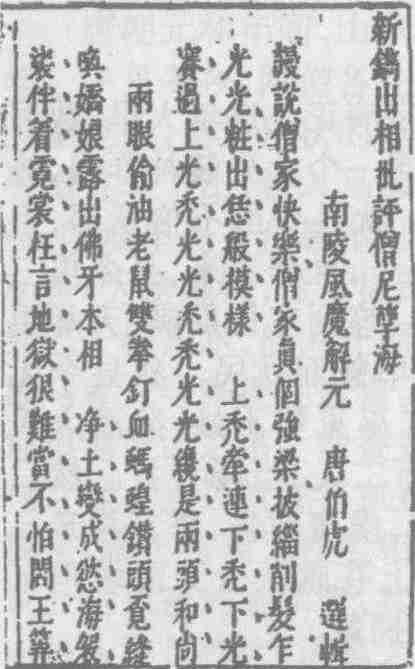 新鐫出相批評僧尼孽海
南陵風魔解元　唐伯虎　選輯
謾說僧家快樂僧家眞個強梁披緇削髮乍
光光粧出恁般模樣　上禿牽連下禿下光
賽過上光禿光光禿禿光光纔是兩頭和尚
兩眼偷油老鼠雙拳釘血螞蝗鑽頭覓縫
喚嬌娘露出佛牙本相　净土變成慾海袈
裟伴着霓裳枉言地獄狠難當不怕閻王算